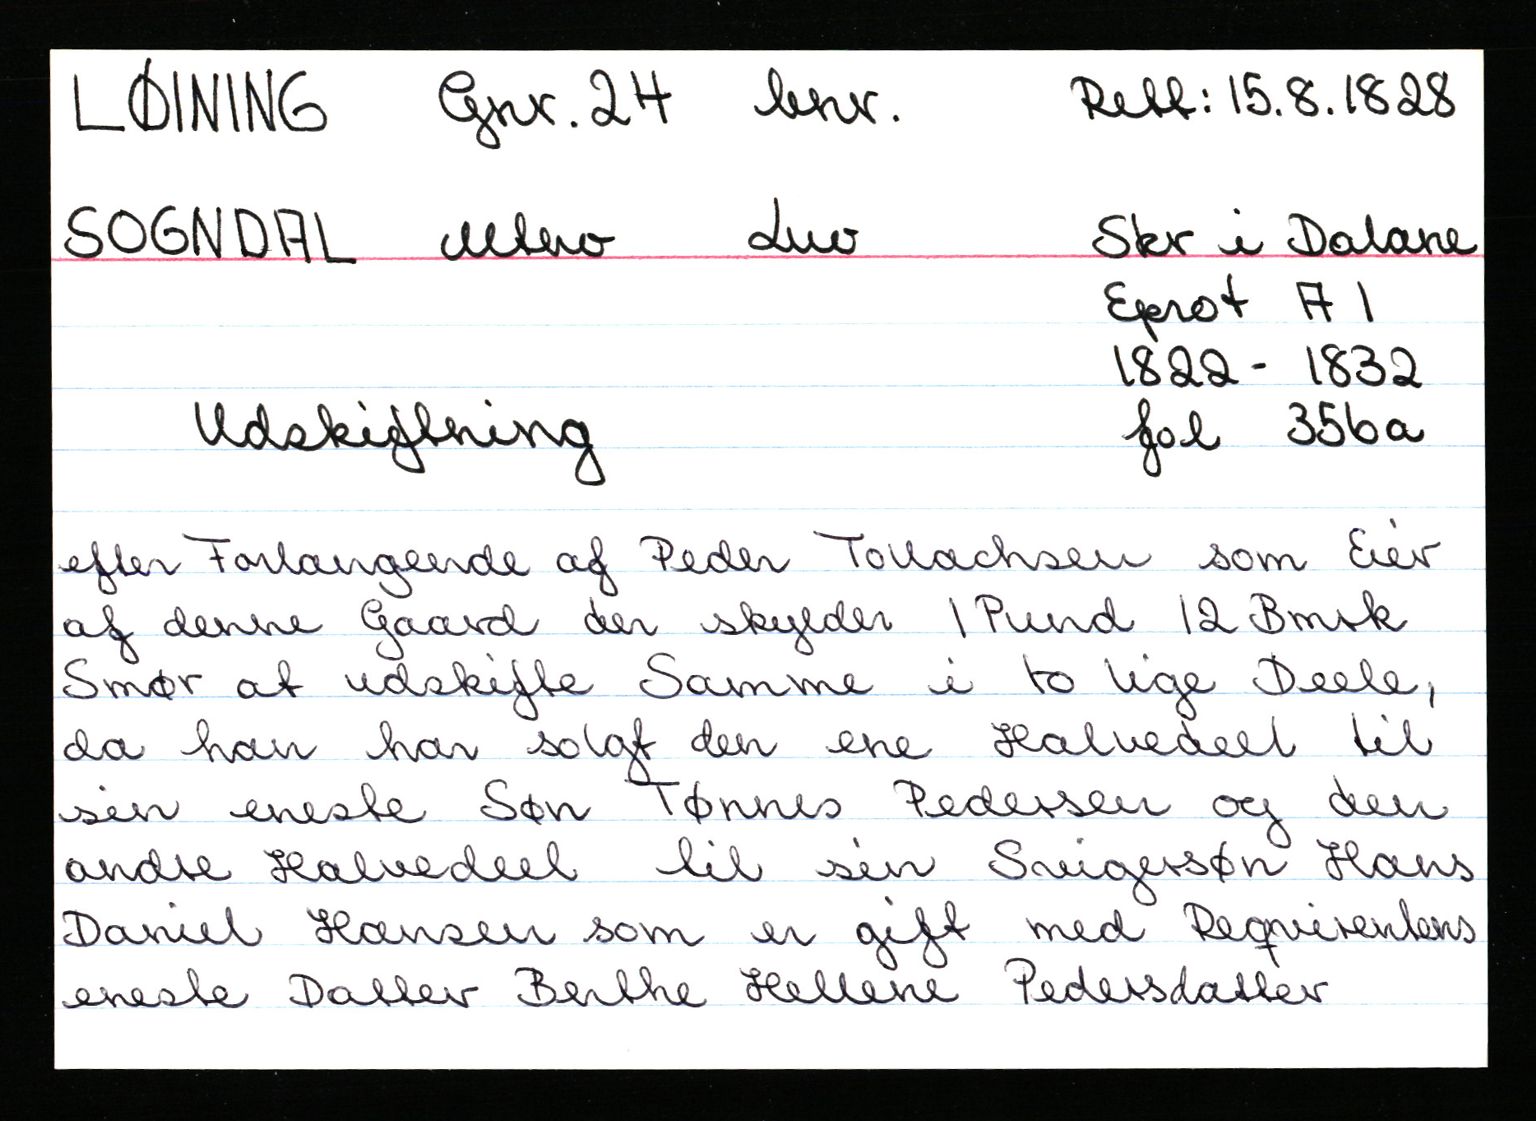 LØINING Gnr. 24 bnr. Rett: 15.8.1828
SOGNDAL Mtno Lno Skr i Dalane
Eprot A 1
1822 - 1832
Udskiftning fol 356a
efter Forlangende af Peder Tollachsen som Eier
af denne Gaard der skylder 1 Pund 12 Bmrk
Smør at udskifte Samme i to lige Deele,
da han har solgt den ene Halvedeel til
sin eneste Søn Tønnes Pedersen og den
andre Halvedeel til sin Svigersøn Hans
Daniel Hansen som er gift med Reqvirentens
eneste Datter Berthe Hellene Pedersdatter